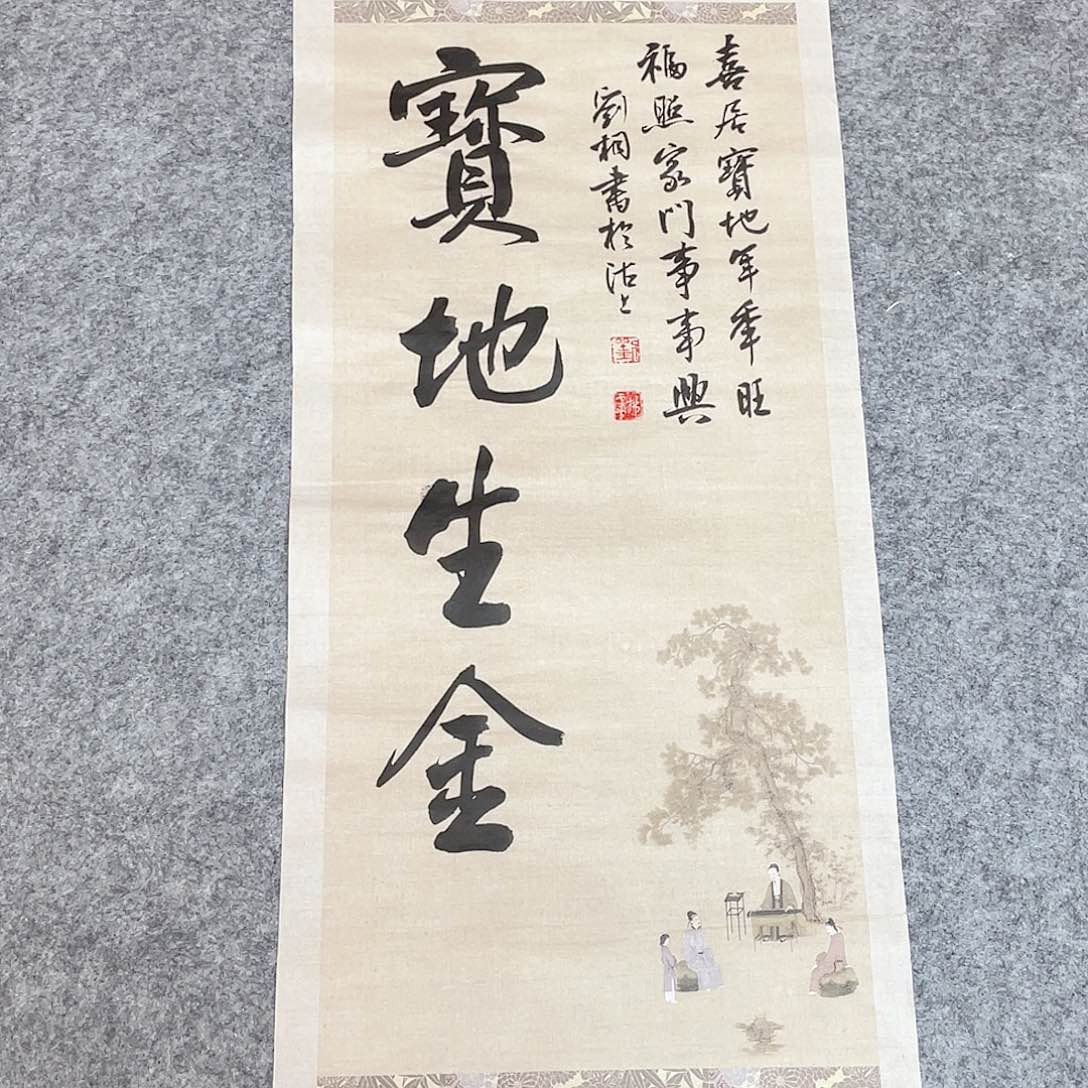 喜居寶地年年旺
福照家門事事興
劉桐書於沽上
寶地生金